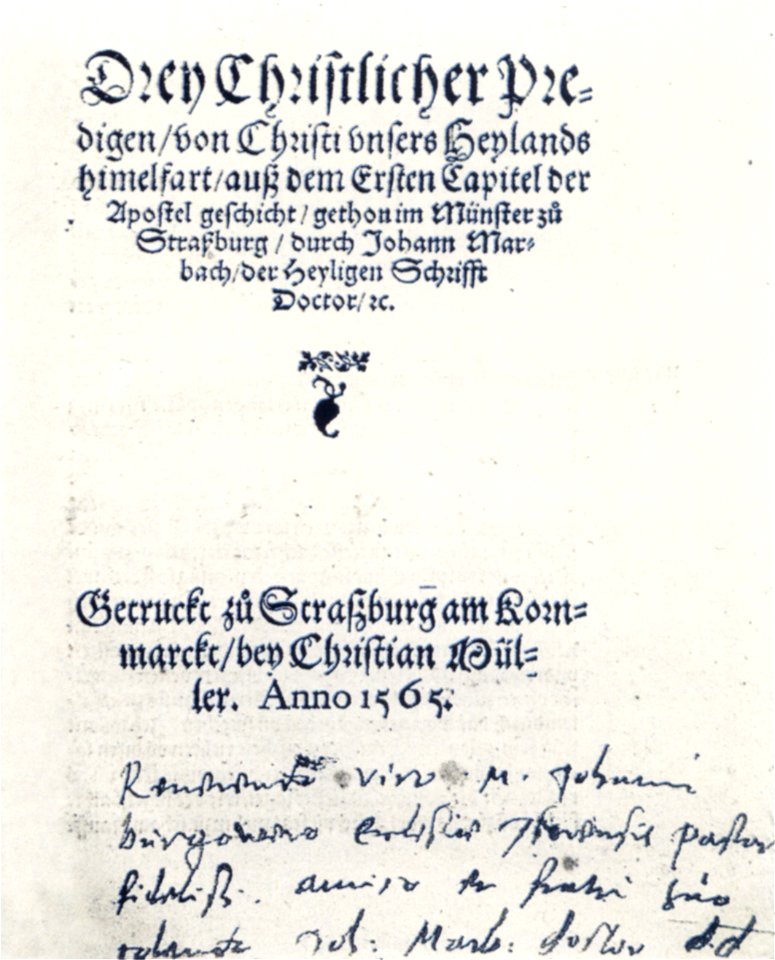 Drey Christlicher Pre-
digen/von Christi vnsers Heylands
himelfart/auß dem Ersten Capitel der
Apostel geschicht/gethon im Münster zů
Straßburg/durch Johann Mar-
bach/der Heyligen Schrifft
Doctor/ꝛc.
Getruckt zů Straßburg am Korn-
marckt/bey Christian Mül-
ler. Anno 1565.
viro M. Johanni
pastori
fideliss. amico et fratri suo
Joh: Marb: doctor d.d